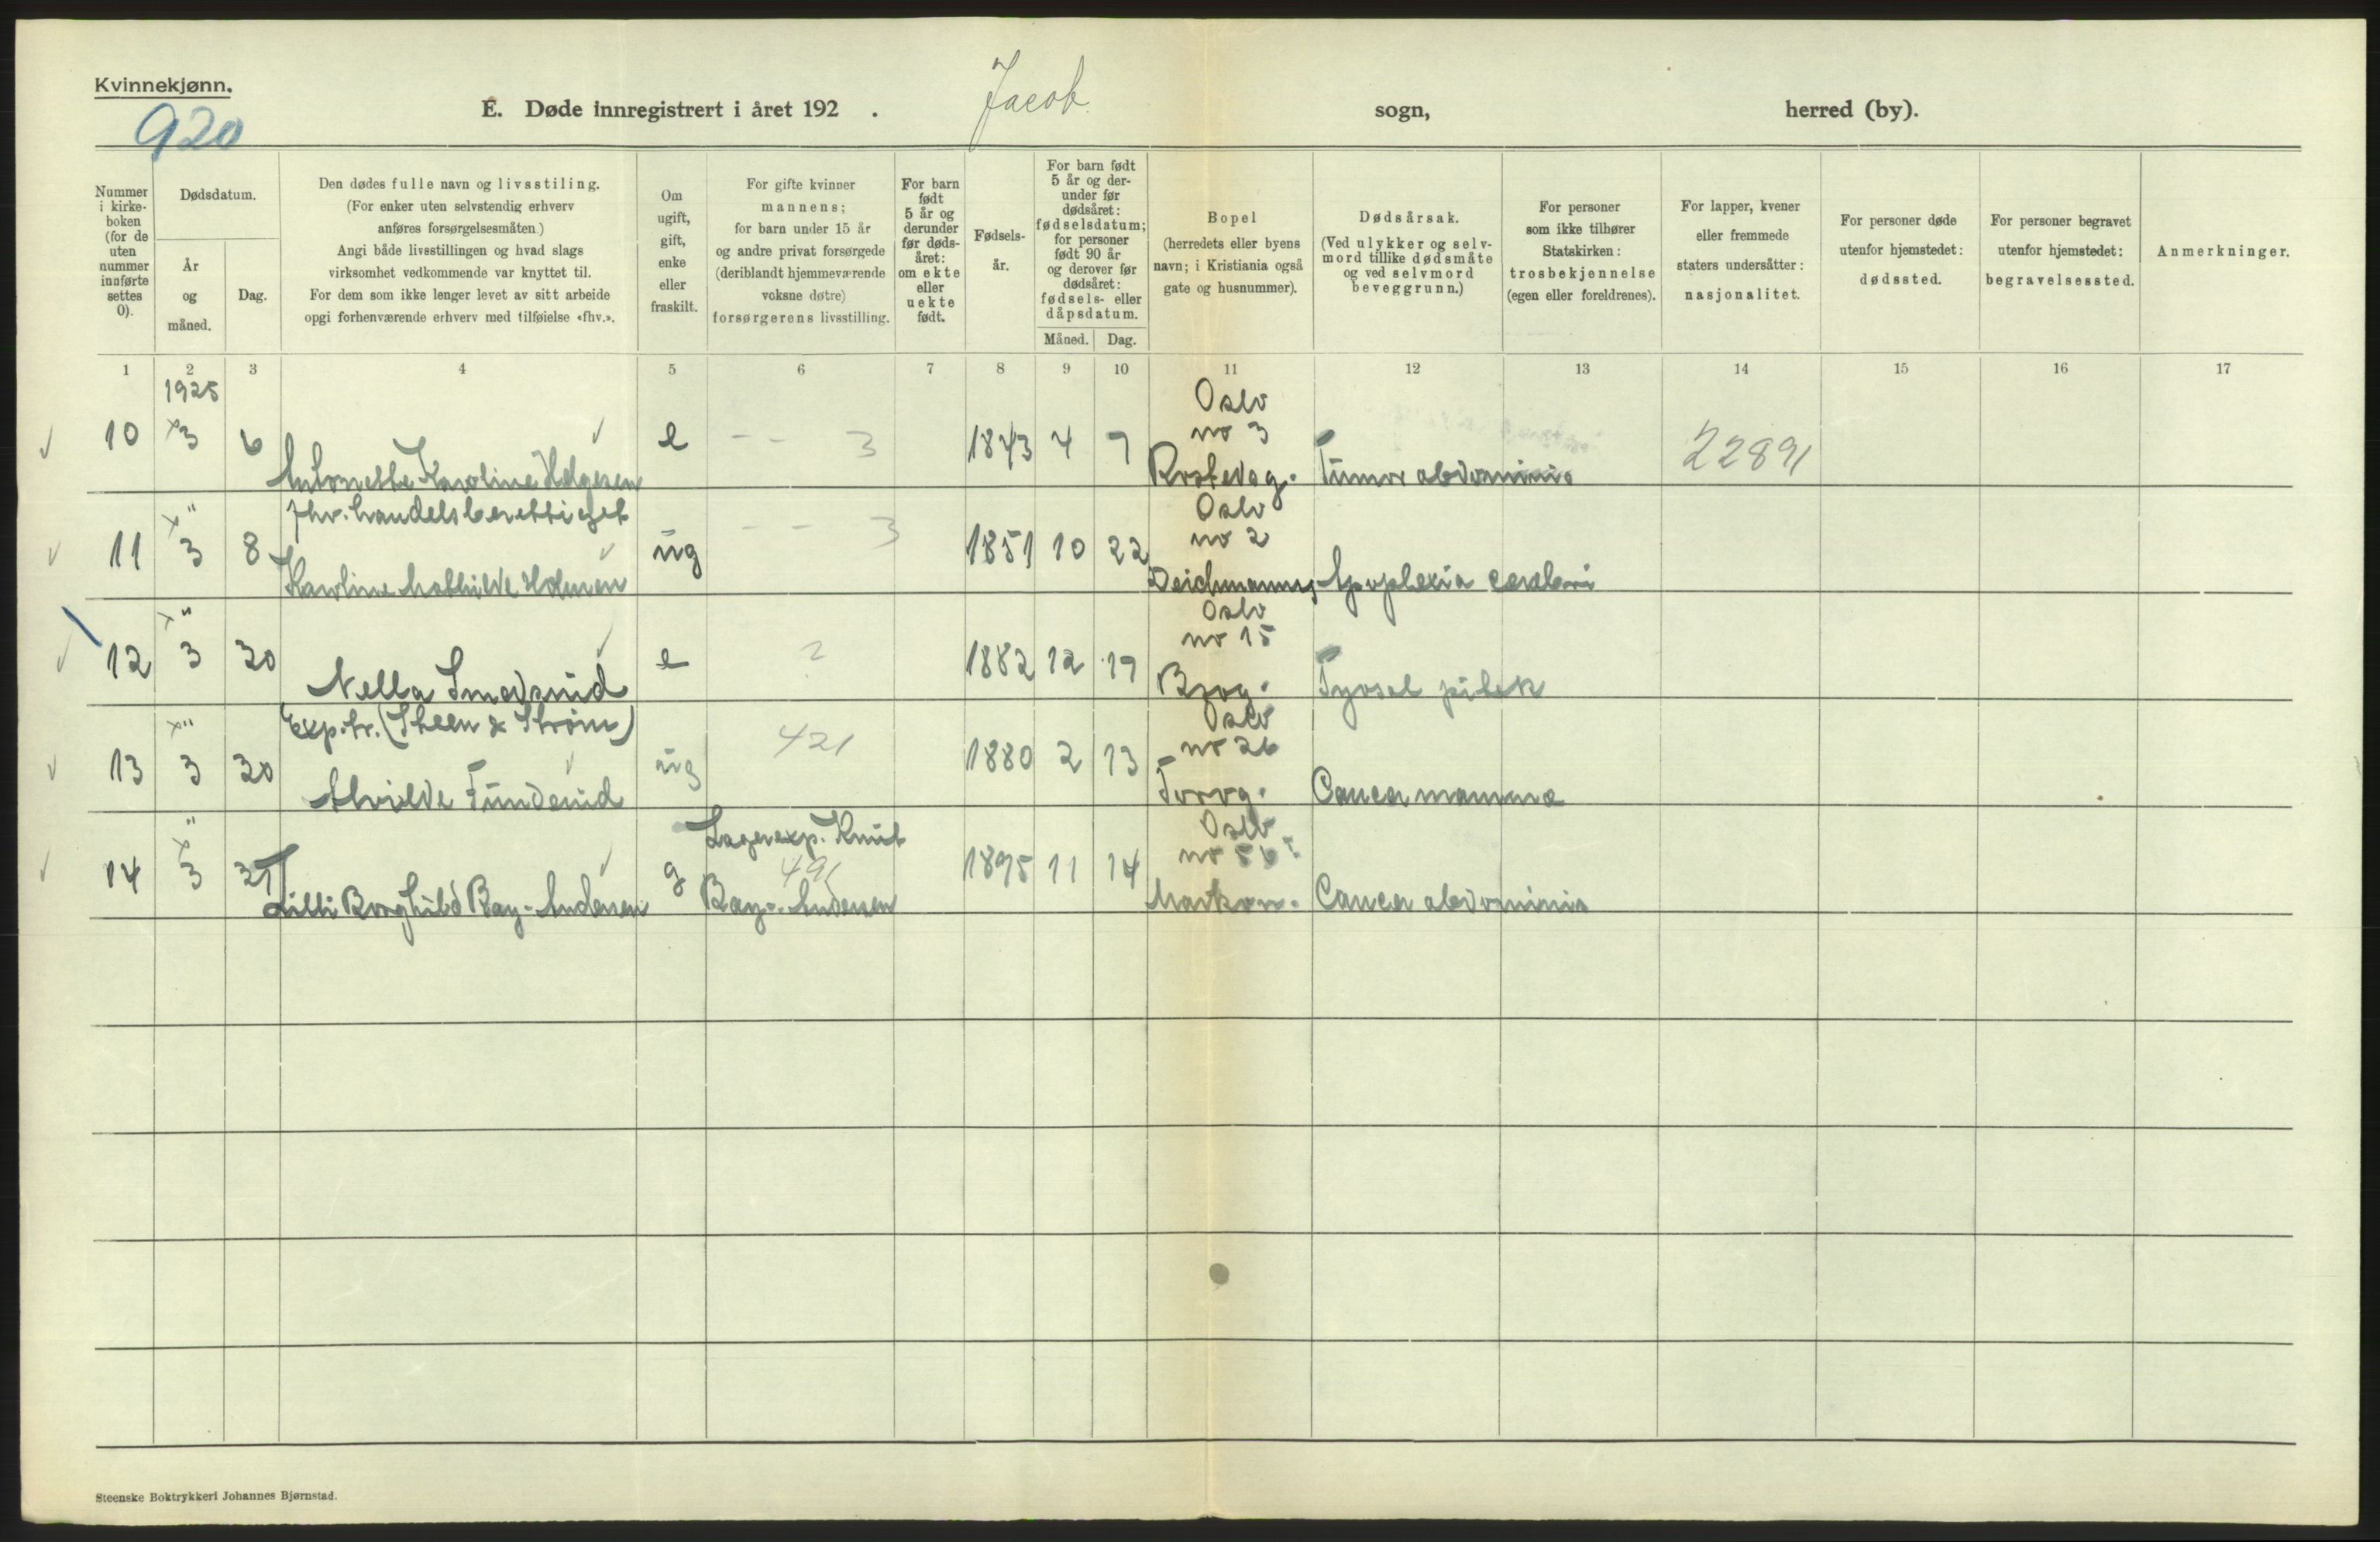 Kvinnekjønn.
920
E. Døde innregistrert i året 192 . Jacob sogn, herred (by).
Nummer i kirkeboken (for de uten nummer innførte settes 0).
Dødsdatum.
År og måned.
Dag.
Den dødes fulle navn og livsstiling.
(For enker uten selvstendig erhverv
anføres forsørgelsesmåten.)
Angi både livsstillingen og hvad slags
virksomhet vedkommende var knyttet til.
For dem som ikke lenger levet av sitt arbeide
opgi forhenværende erhverv med tilføielse «fhv.».
Om
ugift,
gift,
enke
eller
fraskilt.
For gifte kvinner
mannens;
for barn under 15 år
og andre privat forsørgede
(deriblandt hjemmeværende
voksne døtre)
forsørgerens livsstilling.
For barn
født
5 år og
derunder
før døds-
året:
om ekte
eller
uekte
født.
Fødsels-
år.
For barn født
5 år og der-
under før
dødsåret:
fødselsdatum;
for personer
født 90 år
og derover før
dødsåret:
fødsels- eller
dåpsdatum.
Måned. Dag.
Bopel
(herredets eller byens
navn; i Kristiania også
gate og husnummer).
Dødsårsak.
(Ved ulykker og selv-
mord tillike dødsmåte
og ved selvmord
beveggrunn.)
For personer
som ikke tilhører
Statskirken:
trosbekjennelse
(egen eller foreldrenes).
For lapper, kvener
eller fremmede
staters undersåtter:
nasjonalitet.
For personer døde
utenfor hjemstedet:
dødssted.
For personer begravet
utenfor hjemstedet:
begravelsessted.
Anmerkninger.
1 2 3 4 5 6 7 8 9 10 11 12 13 14 15 16 17
1925
Oslo
10 3 6 e -- 3 1843 4 7 no 3 22891
Antonette Karoline Helgesen Rostedsg. Tumor abdominis
fhv. handelsberettiget Oslo
11 3 8 ug -- 3 1851 10 22 no 2
Karoline Mathilde Holmen Deichmannsg Apoplexia cerebri
Oslo
12 3 30 e ? 1882 12 19 no 15
Nella Smedsrud Brog.
Exp.tr. (Steen & Strøm) Oslo
13 3 30 ug 421 1880 2 13 no 26
Alvilde Tunderud Torvg. Cancer mammæ
Lagerexp. Knut Oslo
14 3 31 g 491 1895 11 14 no 56
Lilli Borghild Bay-Andersen Bay-Andersen Markvn. Cancer abdominis
Steenske Boktrykkeri Johannes Bjørnstad.